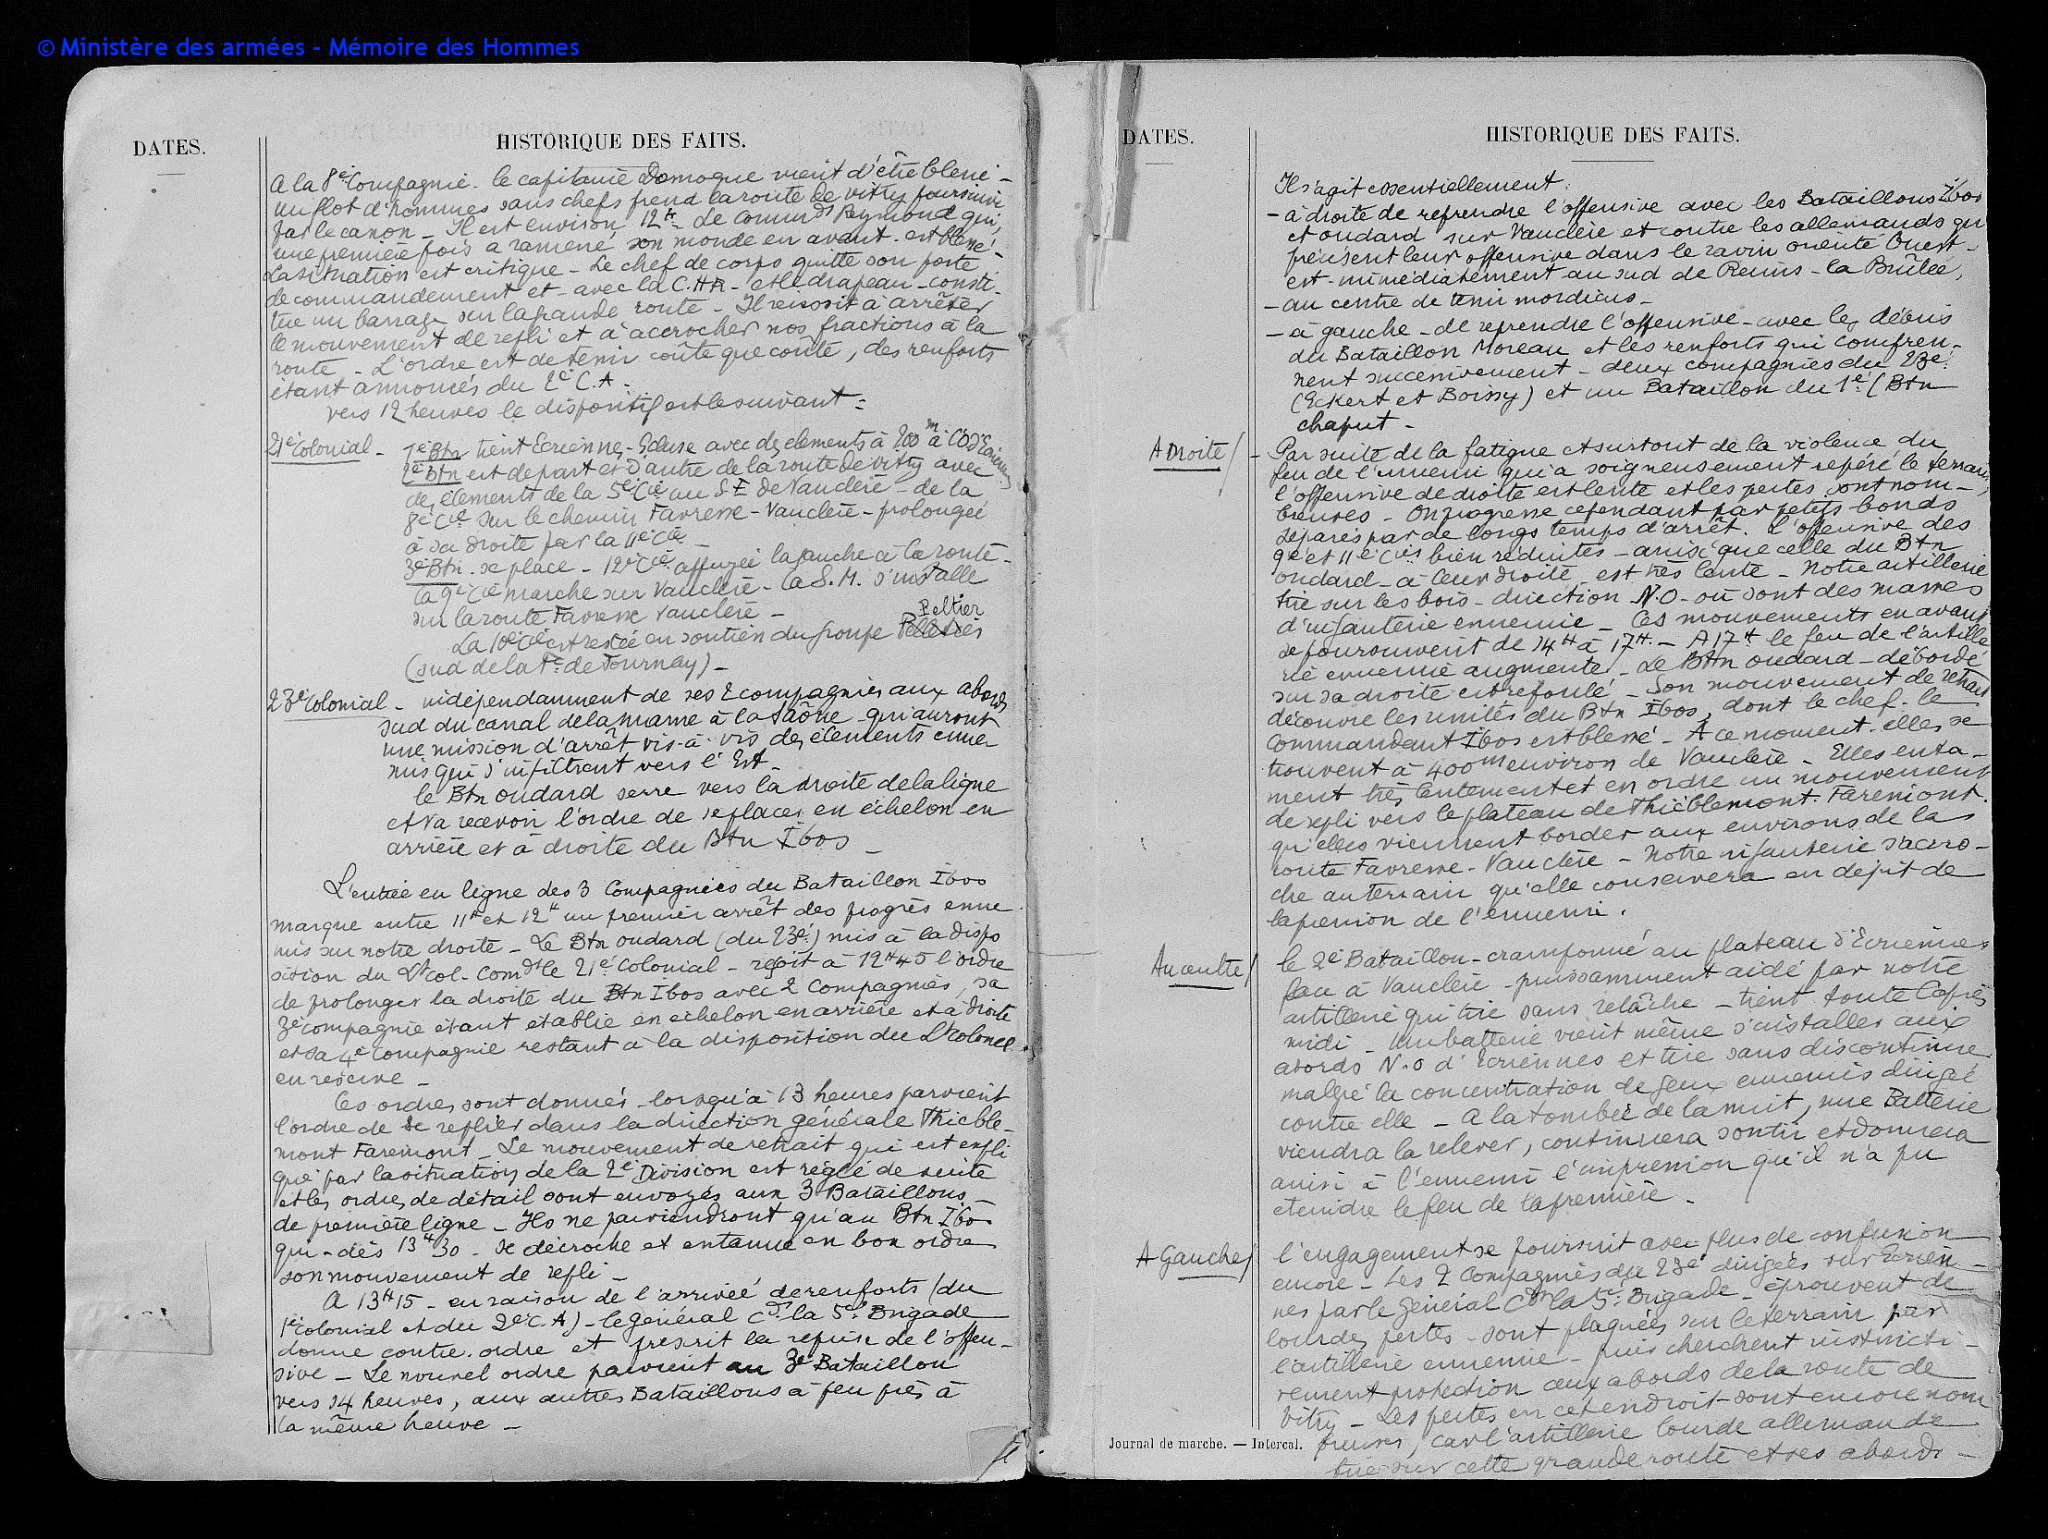 © Ministère des armées - Mémoire des Hommes
DATES.
HISTORIQUE DES FAITS.
A la 8e Compagnie. le capitaine Domoque vient d'être blessé -
un flot d'hommes sans chefs prend la route de Vitry poursuivi
par le canon - Il est environ 12H - Le Commdt Reymond qui,
une première fois a ramené son monde en avant. est blessé -
La situation est critique - Le chef de corps quitte son poste
de commandement et - avec la C.HR - et le drapeau - consti-
tue un barrage sur la grande route - Il réussit à arrêter
le mouvement de repli et à accrocher nos fractions à la
route - L'ordre est de tenir coûte que coûte, des renforts
étant annoncés du 2e C.A -
Vers 12 heures le dispositif est le suivant :
21e Colonial - 1e Btn tient Ecriennes - Ecluse avec des éléments à 200m à l'O. d'Ecriennes
2e Btn est de part et d'autre de la route de Vitry avec
des éléments de la 5e Cie au S E de Vauclerc - de la
8e Cie sur le chemin Favresse - Vauclerc - prolongée
à sa droite par la 11e Cie -
3e Btn. se place - 12e Cie appuyée la gauche à la route -
la 9e Cie marche sur Vauclerc - la S. M. s'installe
sur la route Favresse Vauclerc -
Peltier
La 10e Cie est restée en soutien du groupe
(sud de la Fe de Tournay) -
23e Colonial - indépendamment de ses 2 compagnies aux abords
sud du canal de la Marne à la Saône qui auront
une mission d'arrêt vis-à-vis des éléments enne-
mis qui s'infiltrent vers l'Est -
le Btn Oudard serre vers la droite de la ligne
et va recevoir l'ordre de se placer en échelon en
arrière et à droite du Btn Ibos -
L'entrée en ligne des 3 Compagnies du Bataillon Ibos
marque entre 11H et 12H un premier arrêt des progrès enne
mis sur notre droite - Le Btn Oudard (du 23e) mis à la dispo
sition du Lt Col. Comdt le 21e Colonial - reçoit à 12H45 l'ordre
de prolonger la droite du Btn Ibos avec 2 Compagnies, sa
3e compagnie étant établie en échelon en arrière et à droite
et sa 4e Compagnie restant à la disposition du Lt Colonel
en réserve -
Ces ordres sont donnés lorsqu'à 13 heures parvient
l'ordre de se replier dans la direction générale Thiéble-
mont Faremont - Le mouvement de retrait qui est expli
qué par la situation de la 2e Division est réglé de suite
et les ordres de détail sont envoyés aux 3 Bataillons
de première ligne - Ils ne parviendront qu'au Btn Ibos
qui - dès 13H30 - se décroche et entame en bon ordre
son mouvement de repli -
A 13H15 - en raison de l'arrivée de renforts (du
1e Colonial et du 2e C.A) - le Général Cdt la 5e Brigade
donne contre-ordre et prescrit la reprise de l'offen-
sive - Le nouvel ordre parvient au 3e Bataillon
vers 14 heures, aux autres Bataillons à peu près à
la même heure -
DATES.
HISTORIQUE DES FAITS.
Il s'agit essentiellement :
- à droite de reprendre l'offensive avec les Bataillons Ibos
et Oudard sur Vauclerc et contre les allemands qui
précisent leur offensive dans le ravin orienté Ouest-
est - immédiatement au sud de Reims - la Brûlée,
- au centre de tenir mordicus -
- à gauche - de reprendre l'offensive - avec les débris
du Bataillon Moreau et les renforts qui compren-
nent successivement - deux compagnies du 23e
(Eckert et Boissy) et un Bataillon du 1e (Btn
Chaput -
A Droite/ - Par suite de la fatigue et surtout de la violence du
feu de l'ennemi qui a soigneusement repéré le terrain,
l'offensive de droite est lente et les pertes sont nom-
breuses - On progresse cependant par petits bonds
séparés par de longs temps d'arrêt. L'offensive des
9e et 11e Cies bien réduites - ainsi que celle du Btn
Oudard - à leur droite - est très lente - Notre artillerie
tire sur les bois - direction N.O - où sont des masses
d'infanterie ennemie - Ces mouvements en avant
se poursuivent de 14H à 17H - A 17H le feu de l'artille
rie ennemie augmente - Le Btn Oudard - débordé
sur sa droite est refoulé - Son mouvement de retrait
découvre les unités du Btn Ibos, dont le chef - le
Commandant Ibos est blessé - A ce moment - elles se
trouvent à 400m environ de Vauclerc - Elles enta-
ment très lentement et en ordre un mouvement
de repli vers le plateau de Thiéblemont-Faremont.
qu'elles viennent border aux environs de la
route Favresse - Vauclerc - Notre infanterie s'accro-
che au terrain qu'elle conservera en dépit de
la pression de l'ennemi.
Au centre/ le 2e Bataillon - cramponné au plateau d'Ecriennes
face à Vauclerc - puissamment aidé par notre
artillerie qui tire sans relâche - tient toute l'après
midi - Une batterie vient même s'installer aux
abords N.O d'Ecriennes et tire sans discontinuer
malgré la concentration de feux ennemis dirigée
contre elle - A la tombée de la nuit, une Batterie
viendra la relever, continuera son tir et donnera
ainsi à l'ennemi l'impression qu'il n'a pu
éteindre le feu de la première -
A Gauche/ l'engagement se poursuit avec plus de confusion
encore - Les 2 Compagnies du 23e dirigées sur Ecrien-
nes par le Général Cdt la 5e Brigade - éprouvent de
lourdes pertes - sont plaquées sur le terrain par
l'artillerie ennemie - puis cherchent instincti-
vement protection aux abords de la route de
Vitry - Les pertes en cet endroit - sont encore nom
breuses, car l'artillerie lourde allemande
tire sur cette grande route et ses abords -
Journal de marche. — Intercal.